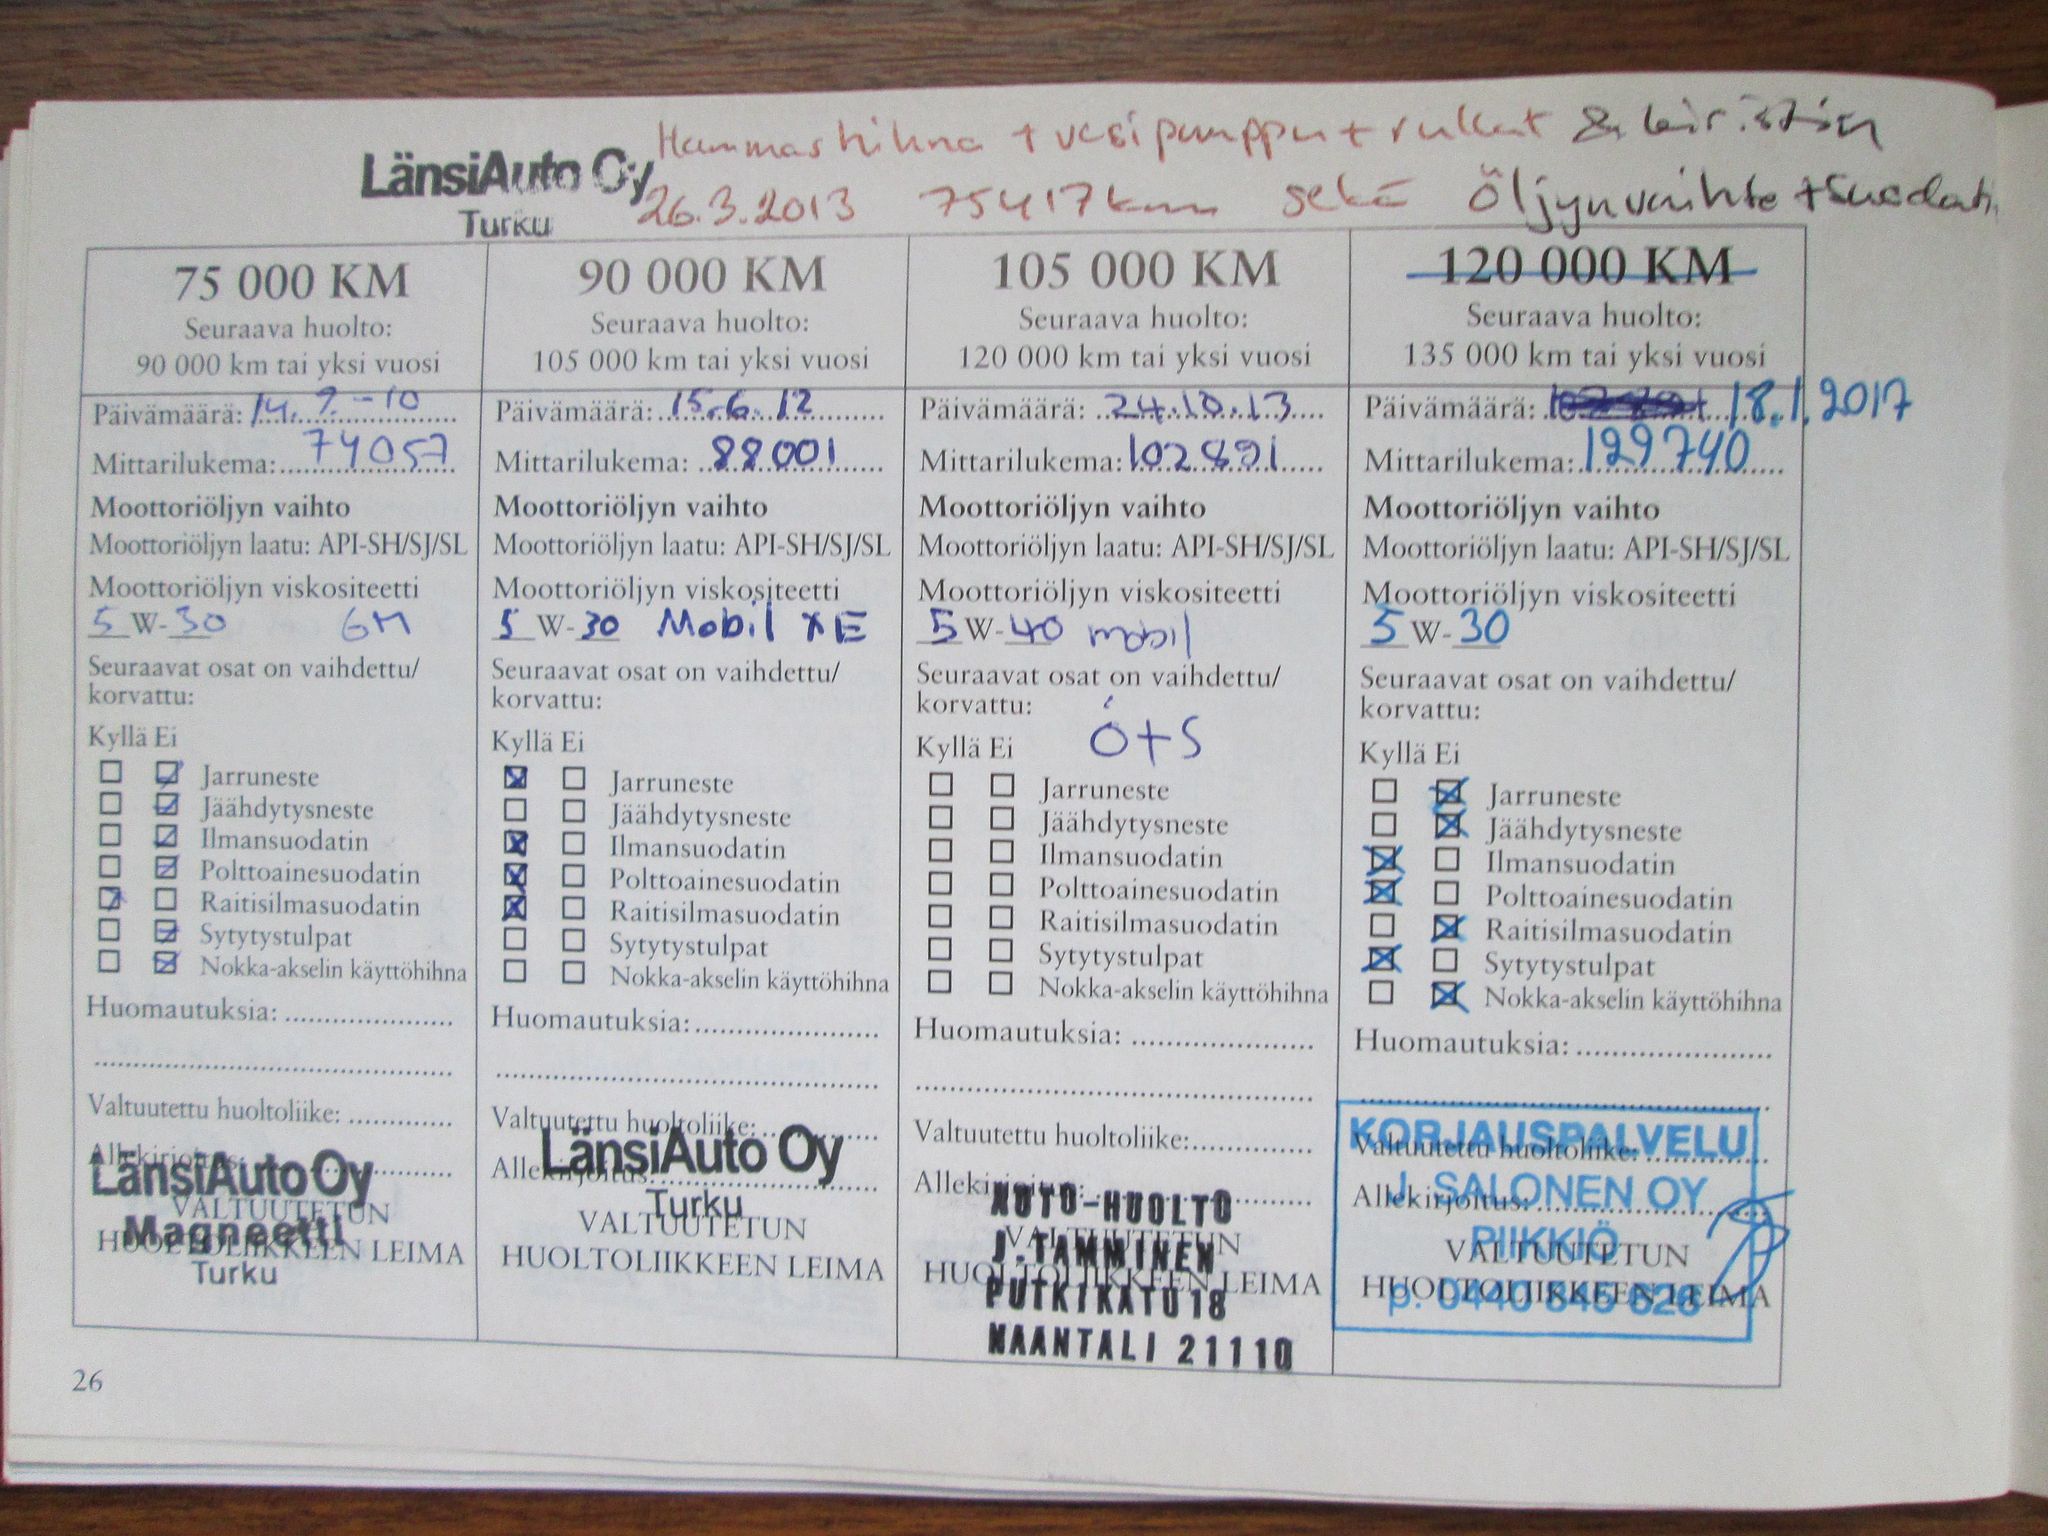 Hammashihna + vesipumppu + rullat & kiristin
LänsiAuto Oy
Turku
26.3.2013 75417 km sekä Öljynvaihto + suodatin
75 000 KM
Seuraava huolto:
90 000 km tai yksi vuosi
Päivämäärä: 14.9.-10
Mittarilukema: 74057
Moottoriöljyn vaihto
Moottoriöljyn laatu: API-SH/SJ/SL
Moottoriöljyn viskositeetti
5 W-30 GM
Seuraavat osat on vaihdettu/
korvattu:
Kyllä Ei
Jarruneste
Jäähdytysneste
Ilmansuodatin
Polttoainesuodatin
Raitisilmasuodatin
Sytytystulpat
Nokka-akselin käyttöhihna
Huomautuksia:
Valtuutettu huoltoliike:
Allekirjoitus:
LänsiAuto Oy
VALTUUTETUN
Magneetti
HUOLTOLIIKKEEN LEIMA
Turku
90 000 KM
Seuraava huolto:
105 000 km tai yksi vuosi
Päivämäärä: 15.6.12
Mittarilukema: 88001
Moottoriöljyn vaihto
Moottoriöljyn laatu: API-SH/SJ/SL
Moottoriöljyn viskositeetti
5 W-30 Mobil XE
Seuraavat osat on vaihdettu/
korvattu:
Kyllä Ei
Jarruneste
Jäähdytysneste
Ilmansuodatin
Polttoainesuodatin
Raitisilmasuodatin
Sytytystulpat
Nokka-akselin käyttöhihna
Huomautuksia:
Valtuutettu huoltoliike:
LänsiAuto Oy
Allekirjoitus:
Turku
VALTUUTETUN
HUOLTOLIIKKEEN LEIMA
105 000 KM
Seuraava huolto:
120 000 km tai yksi vuosi
Päivämäärä: 24.10.13
Mittarilukema: 102891
Moottoriöljyn vaihto
Moottoriöljyn laatu: API-SH/SJ/SL
Moottoriöljyn viskositeetti
5 W-40 mobil
Seuraavat osat on vaihdettu/
korvattu:
Kyllä Ei Ö+S
Jarruneste
Jäähdytysneste
Ilmansuodatin
Polttoainesuodatin
Raitisilmasuodatin
Sytytystulpat
Nokka-akselin käyttöhihna
Huomautuksia:
Valtuutettu huoltoliike:
Allekirjoitus:
AUTO-HUOLTO
VALTUUTETUN
J.TAMMINEN
HUOLTOLIIKKEEN LEIMA
PUTKIKATU 18
NAANTALI 21110
120 000 KM
Seuraava huolto:
135 000 km tai yksi vuosi
Päivämäärä: 18.1.2017
Mittarilukema: 129740
Moottoriöljyn vaihto
Moottoriöljyn laatu: API-SH/SJ/SL
Moottoriöljyn viskositeetti
5 W-30
Seuraavat osat on vaihdettu/
korvattu:
Kyllä Ei
Jarruneste
Jäähdytysneste
Ilmansuodatin
Polttoainesuodatin
Raitisilmasuodatin
Sytytystulpat
Nokka-akselin käyttöhihna
Huomautuksia:
KORJAUSPALVELU
Valtuutettu huoltoliike:
J. SALONEN OY
Allekirjoitus:
PIIKKIÖ
VALTUUTETUN
HUOLTOLIIKKEEN LEIMA
p. 0440 845 628
26